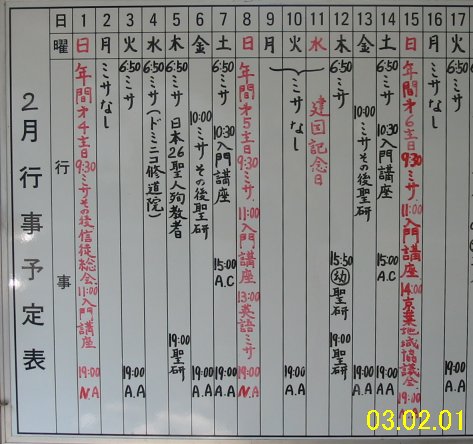 2月行事予定表
日 曜 行事
1 日 年間才4主日 9:30ミサその後信徒総会 11:00入門講座 19:00 N.A
2 月 ミサなし
3 火 6:50ミサ 19:00 A.A
4 水 6:50ミサ(ドミニコ修道院)
5 木 6:50ミサ 日本26聖人殉教者 19:00聖研
6 金 6:50ミサ 10:00ミサその後聖研 19:00 A.A
7 土 6:50ミサ 10:30入門講座 15:00 A.C 19:00 A.A
8 日 年間才5主日 9:30ミサ 11:00入門講座 13:00英語ミサ 19:00 N.A
9 月
10 火 ミサなし 19:00 A.A
11 水 建国記念日
12 木 6:50ミサ 15:50 幼 聖研 19:00聖研
13 金 10:00ミサその後聖研 19:00 A.A
14 土 6:50ミサ 10:30入門講座 15:00 A.C 19:00 A.A
15 日 年間才6主日 9:30ミサ 11:00入門講座 14:00京葉地域協議会 19:00
16 月 ミサなし
17 火 6:50ミサ 19:00 A.A
03.02.01